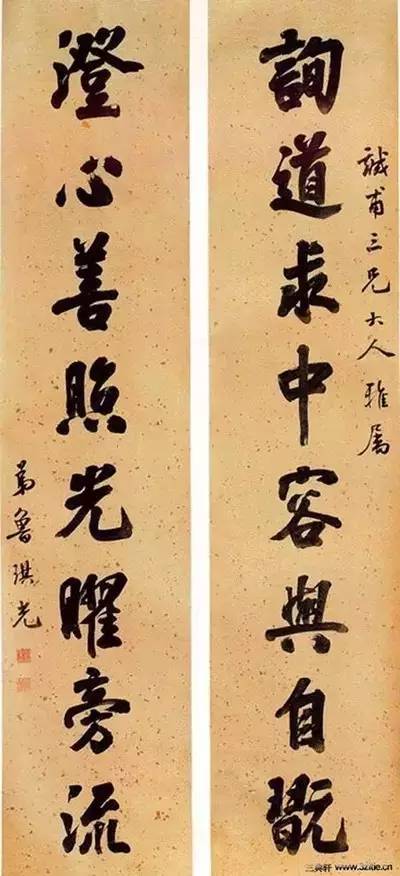 誠甫三兄大人雅屬
詢道求中容與自翫
澄心善照光曜旁流
弟魯琪光
三典轩